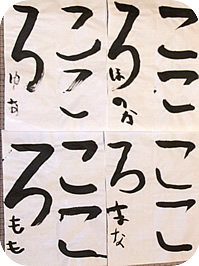 ここ
ろ
ほのか
ここ
ろ
ここ
ろ
まな
ここ
ろ
もも